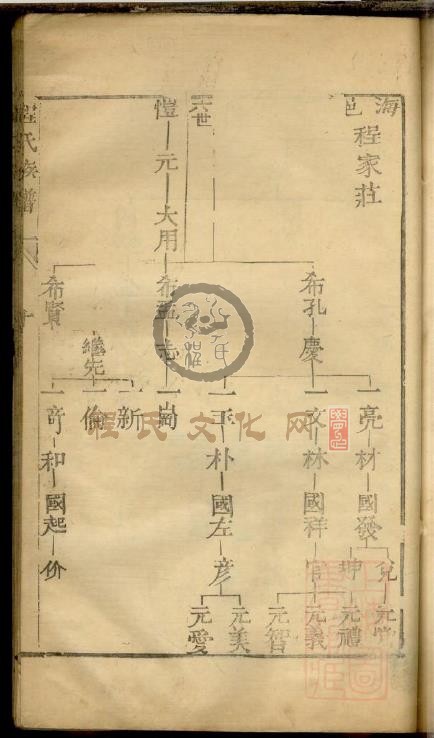 海邑
程家莊
六世
愷 元 大用
希孔 慶
希孟 志
希賢
繼先
亮 材 國發
文 林 國祥 官
玉 朴 國左 彦
尚
新
倫
奇 和 國起 价
兌
坤
元禮
元義
元智
元美
元愛
程氏族譜
程氏文化网